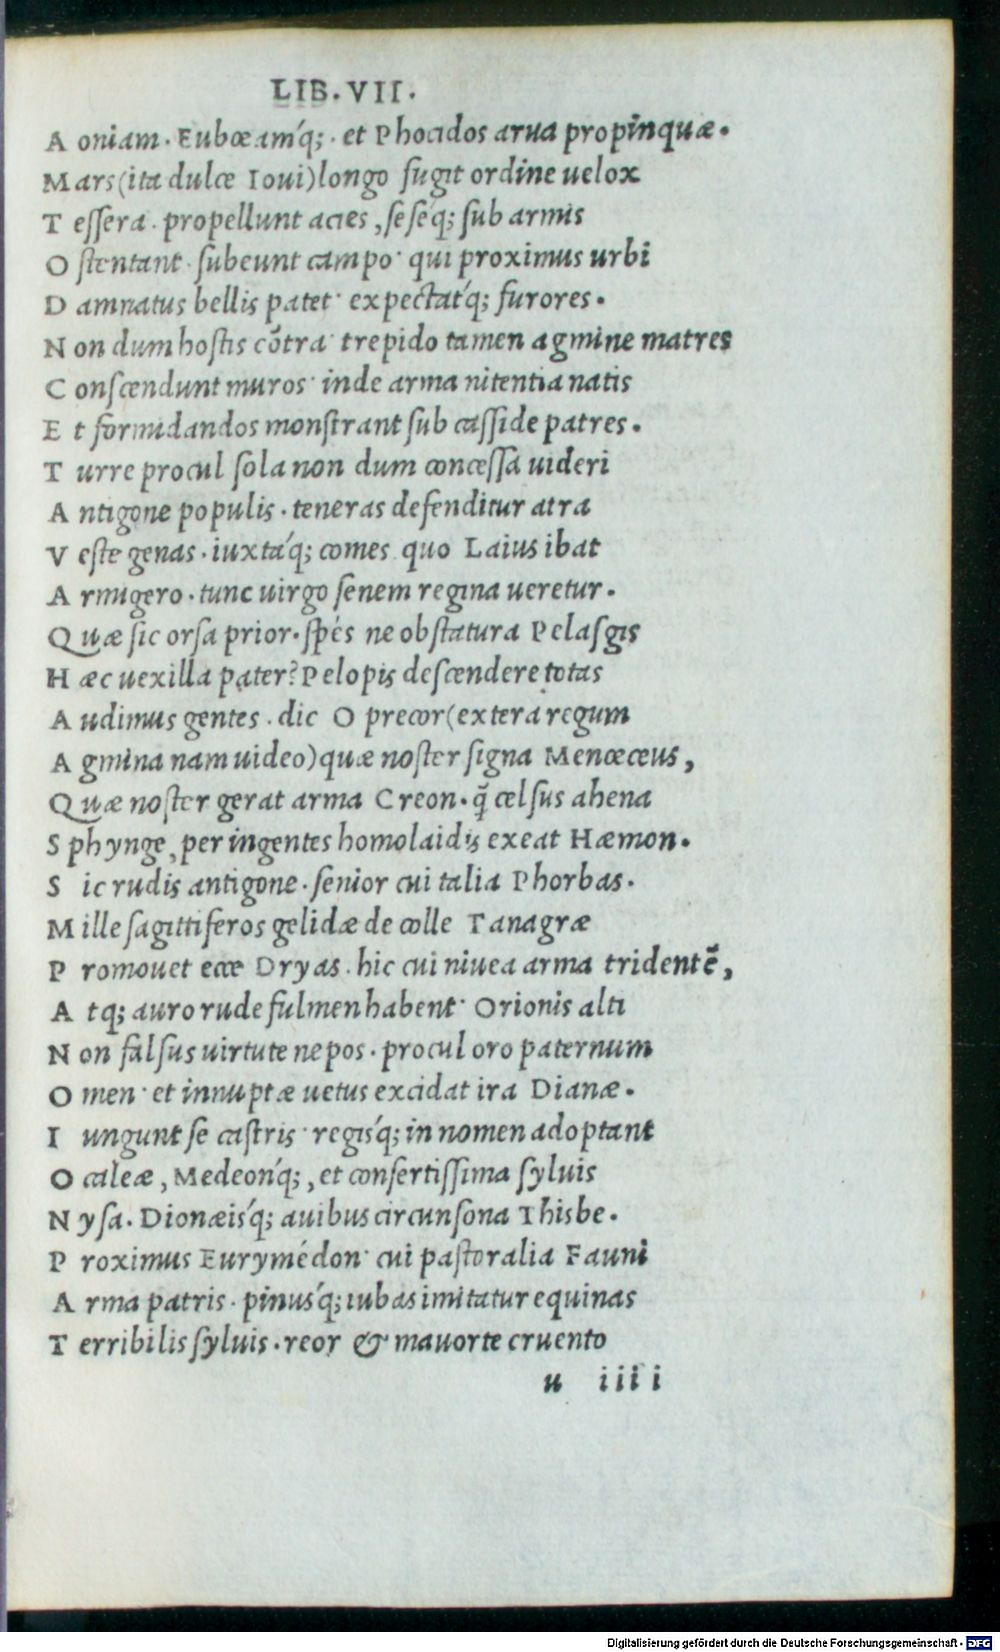 LIB.VII.
A oniam. Eubœamq́;. et Phocidos arua propinquæ.
M ars(ita dulce Ioui)longo fugit ordine uelox
T eſſera. propellunt acies, ſeſeq́; ſub armis
O ſtentant. ſubeunt campo. qui proximus urbi
D amnatus bellis patet. expectatq́; furores.
N on dum hoſtis cõtra. trepido tamen agmine matres
C onſcendunt muros. inde arma nitentia natis
E t formidandos monſtrant ſub caſſide patres.
T urre procul ſola non dum conceſſa uideri
A ntigone populis. teneras defenditur atra
V eſte genas. iuxtaq́; comes quo Laius ibat
A rmigero. tunc uirgo ſenem regina ueretur.
Q uæ ſic orſa prior. ſpés ne obſtatura Pelaſgis
H æc uexilla pater? Pelopis deſcendere totas
A udimus gentes. dic O precor(extera regum
A gmina nam uideo)quæ noſter ſigna Menœceus,
Q uæ noſter gerat arma Creon. q̃ celſus ahena
S phynge, per ingentes homolaidis exeat Hæmon.
S ic rudis antigone. ſenior cui talia Phorbas.
M ille ſagittiferos gelidæ de colle Tanagræ
P romouet ecce Dryas. hic cui niuea arma tridentẽ,
A tq; auro rude fulmen habent. Orionis alti
N on falſus uirtute nepos. procul oro paternum
O men. et innuptæ uetus excidat ira Dianæ.
I ungunt ſe caſtris. regisq́; in nomen adoptant
O caleæ, Medeonq́;, et confertiſſima ſyluis
N yſa. Dionæisq́; auibus circunſona Thisbe.
P roximus Eurymédon. cui paſtoralia Fauni
A rma patris. pinusq́; iubas imitatur equinas
T erribilis ſyluis. reor & mauorte cruento
u iiii
Digitalisierung gefördert durch die Deutsche Forschungsgemeinschaft - DFG